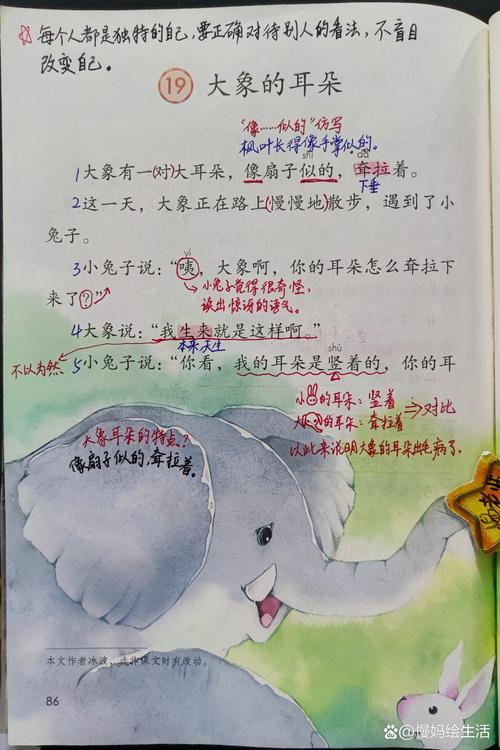 每个人都是独特的自己,要正确对待别人的看法,不盲目
改变自己。
19 大象的耳朵
“像……似的”仿写
枫叶长得像手掌似的。
shì dā
1大象有一(对)大耳朵,像扇子似的,耷拉着。
下垂
2这一天,大象正在路上(慢慢地)散步,遇到了小
兔子。
yí
3小兔子说:“咦,大象啊,你的耳朵怎么耷拉下
来了?”
小兔子觉得很奇怪,
读出惊讶的语气。
4大象说:“我生来就是这样啊。”
本来 天生
不以为然
shù
5小兔子说:“你看,我的耳朵是竖着的,你的耳
小的耳朵:竖着
大的耳朵:耷拉着
⇒对比
以此来说明大象的耳朵出毛病了。
大象耳朵的特点?
像扇子似的,耷拉着。
本文作者冰波,选作课文时有改动。
86
慢妈绘生活